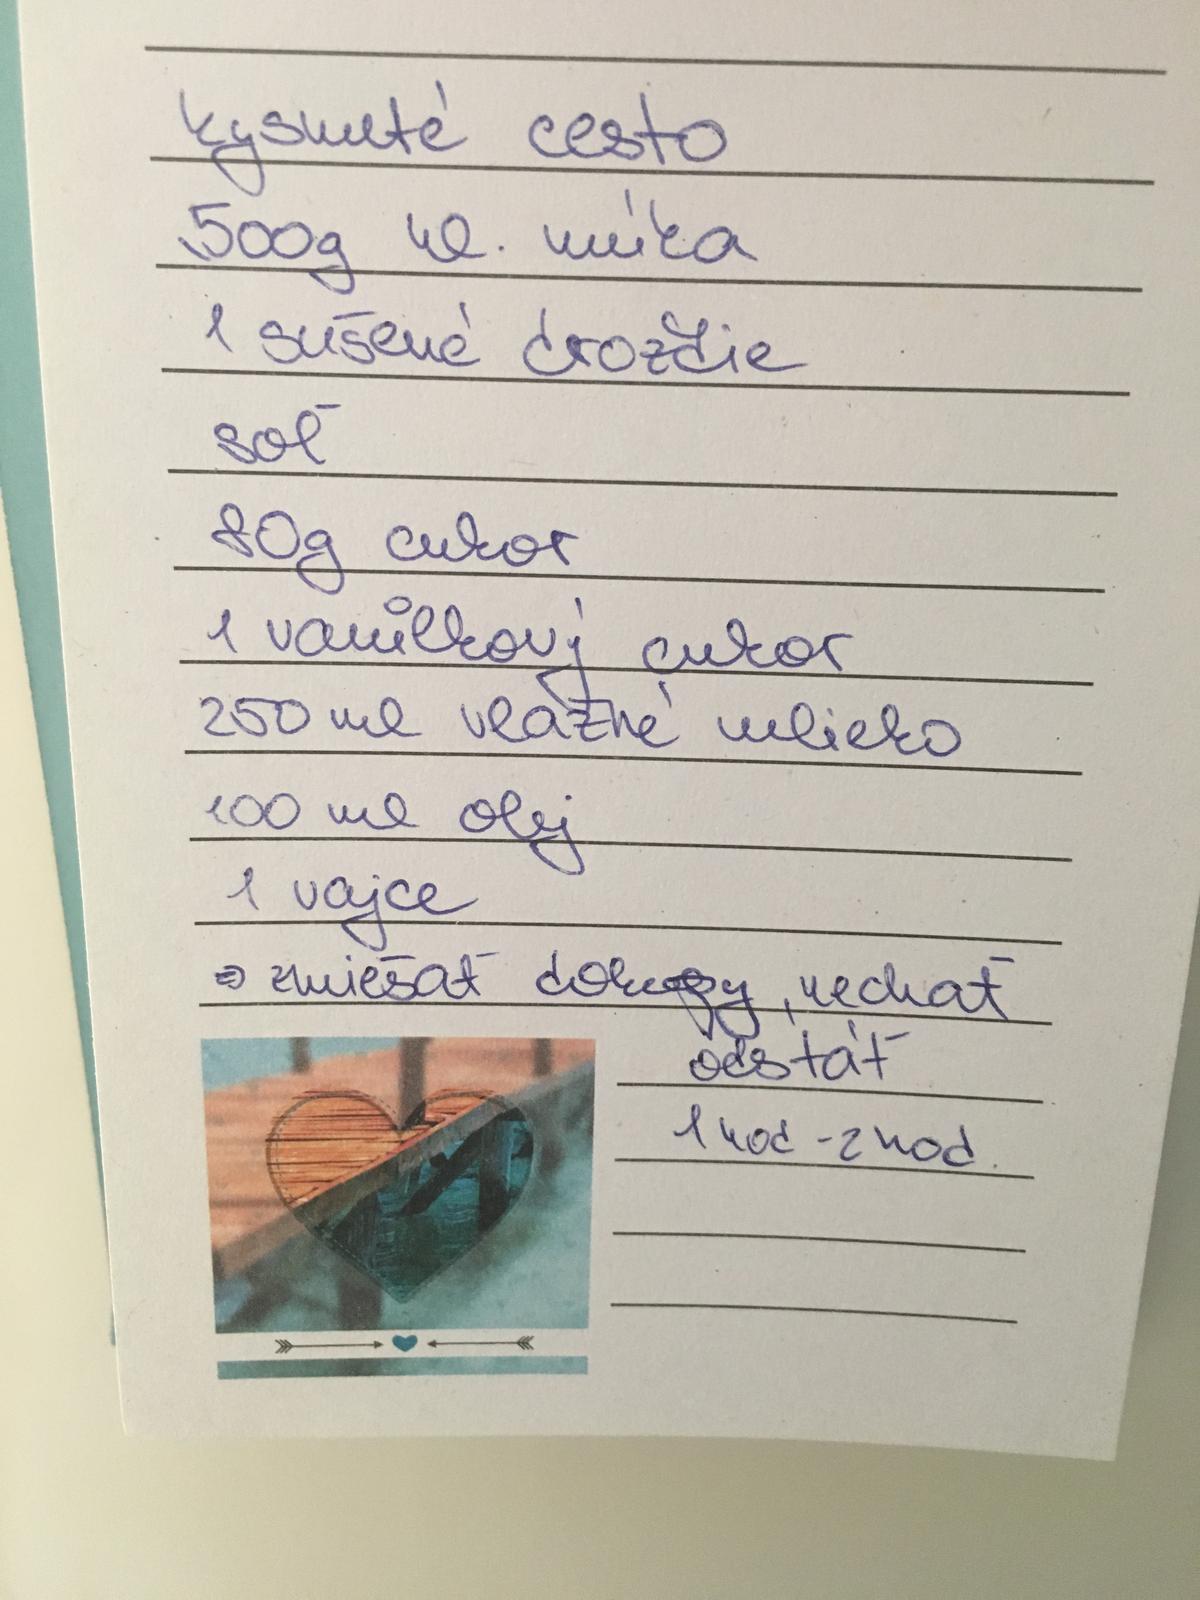 kysnuté cesto
500g hl. múka
1 sušené droždie
soľ
80g cukor
1 vanilkový cukor
250 ml vlažné mlieko
100 ml olej
1 vajce
⇒ zmiešať dokopy, nechať
odstáť
1 hod - 2 hod.